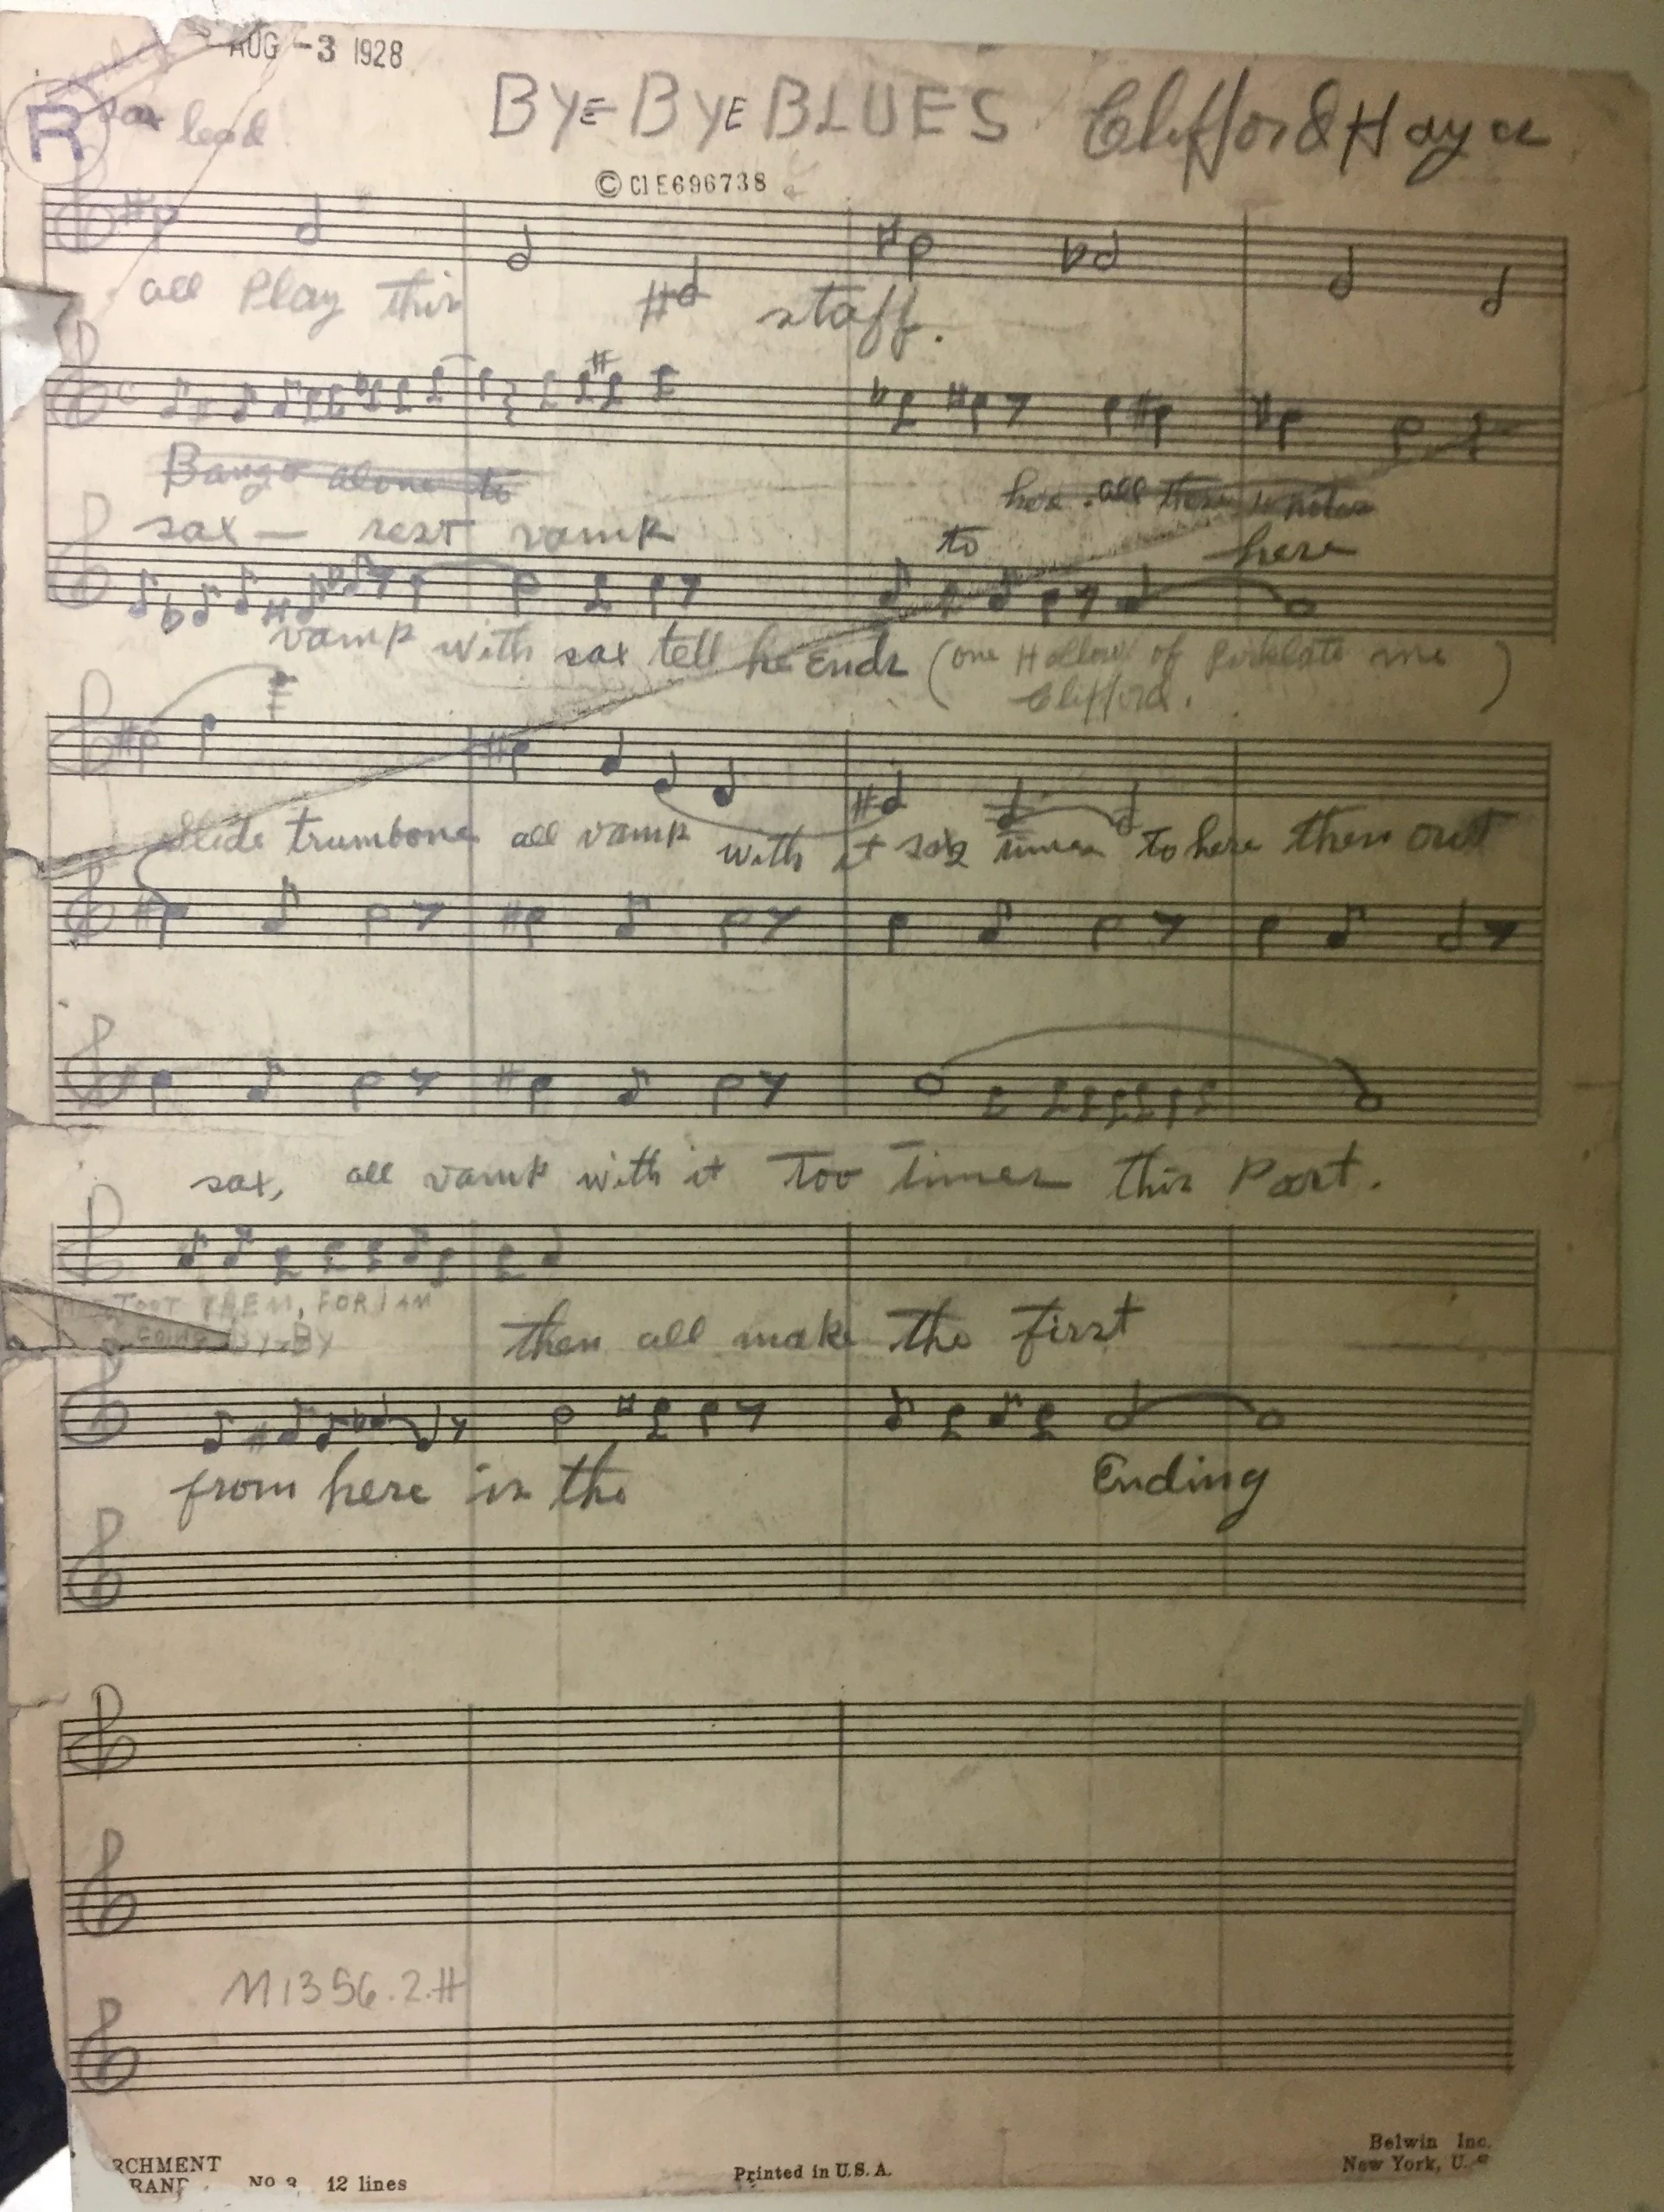 AUG -3 1928
R
Sax lead
BYE BYE BLUES Clifford Hayes
© CIE696738
all Play this staff.
Banyo alone to
here. all these notes
sax — rest vamp to here
vamp with sax tell he Ends (one Hollow of me
Clifford.)
Slide trumbone all vamp with it six times to here then out
sax, all vamp with it Too Times this Part.
TOOT THEM, FOR I AM
GOING BY-BY
then all make the first
from here is the Ending
M1356.2.H
RCHMENT
BRAND No 2 12 lines
Printed in U.S.A.
Belwin Inc.
New York, U.S.